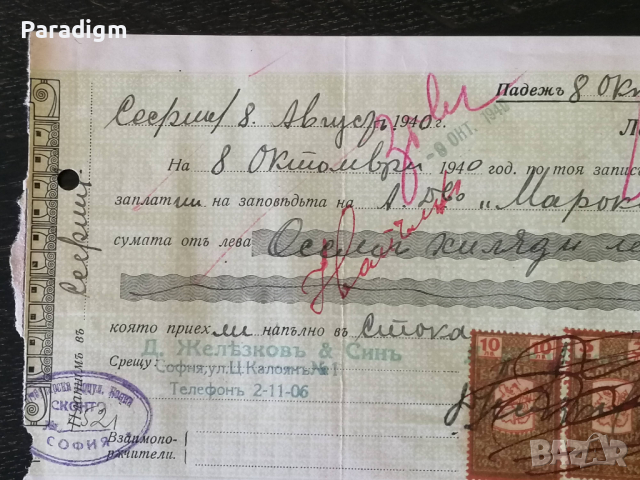 Paradigm
Падежъ 8 Окт
София 8. Августъ 1940 г.
- 9 ОКТ. 1940
На 8 Октомври 1940 год. по тоя запис
заплатим на заповѣдьта на А. Д-во "Марок
сумата отъ лева Осем хиляди ле
която приехми напълно въ стока
Д. Желѣзковъ & Синъ
Срещу: София, ул. Ц. Калоянъ № 1
Телефонъ 2-11-06
Взаимопо-
ржчители.
Платимъ въ София
СКОНТО
СОФИЯ
10 10
BAZAR